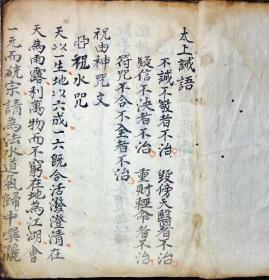 太上誡語
不誠不敬者不治 毀傍天醫者不治
疑信不決者不治 重財輕命者不治
符咒不合不全者不治
祝由神咒文
亞祖水咒
天以一生地以六成一六既合活潑澄清在
天為雨露利萬物而不窮在地為江湖會
一元而統宗請為法水道氣歸中噀灑